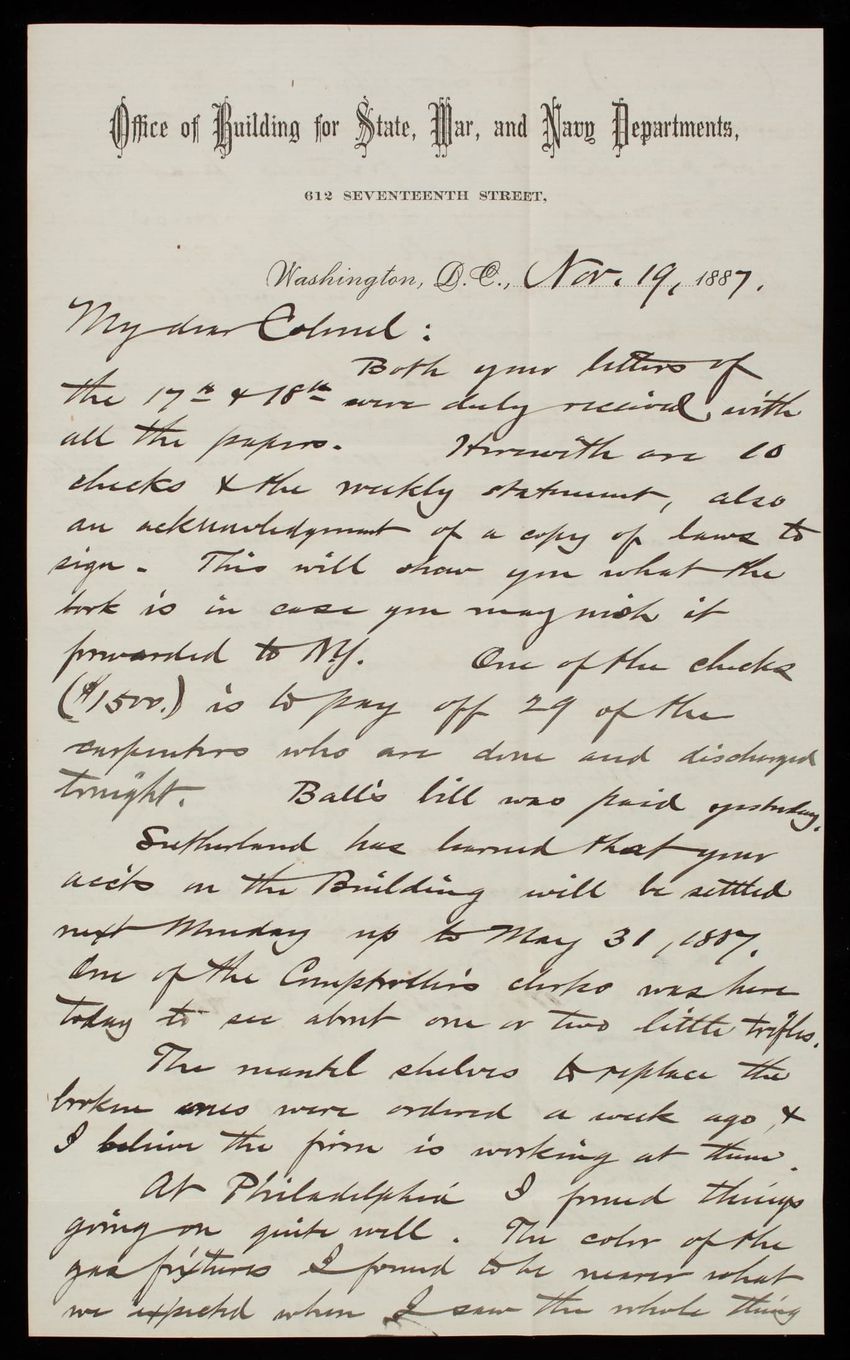 Office of Building for State, War, and Navy Departments,
612 SEVENTEENTH STREET,
Washington, D.C., Nov. 19, 1887.
My dear Colonel:
Both your letters of
the 17th & 18th were duly received with
all the papers. Herewith are 10
checks & the weekly statement, also
an acknowledgment of a copy of laws to
sign. This will show you what the
book is in case you may wish it
forwarded to N.Y. One of the checks
($1500.) is to pay off 29 of the
carpenters who are done and discharged
tonight. Ball's bill was paid yesterday.
Sutherland has learned that your
acc'ts on the Building will be settled
next Monday up to May 31, 1887.
One of the Comptroller's clerks was here
today to see about one or two little trifles.
The mantel shelves to replace the
broken ones were ordered a week ago, &
I believe the firm is working at them.
At Philadelphia I found things
going on quite well. The color of the
gas fixtures I found to be nearer what
we expected when I saw the whole thing